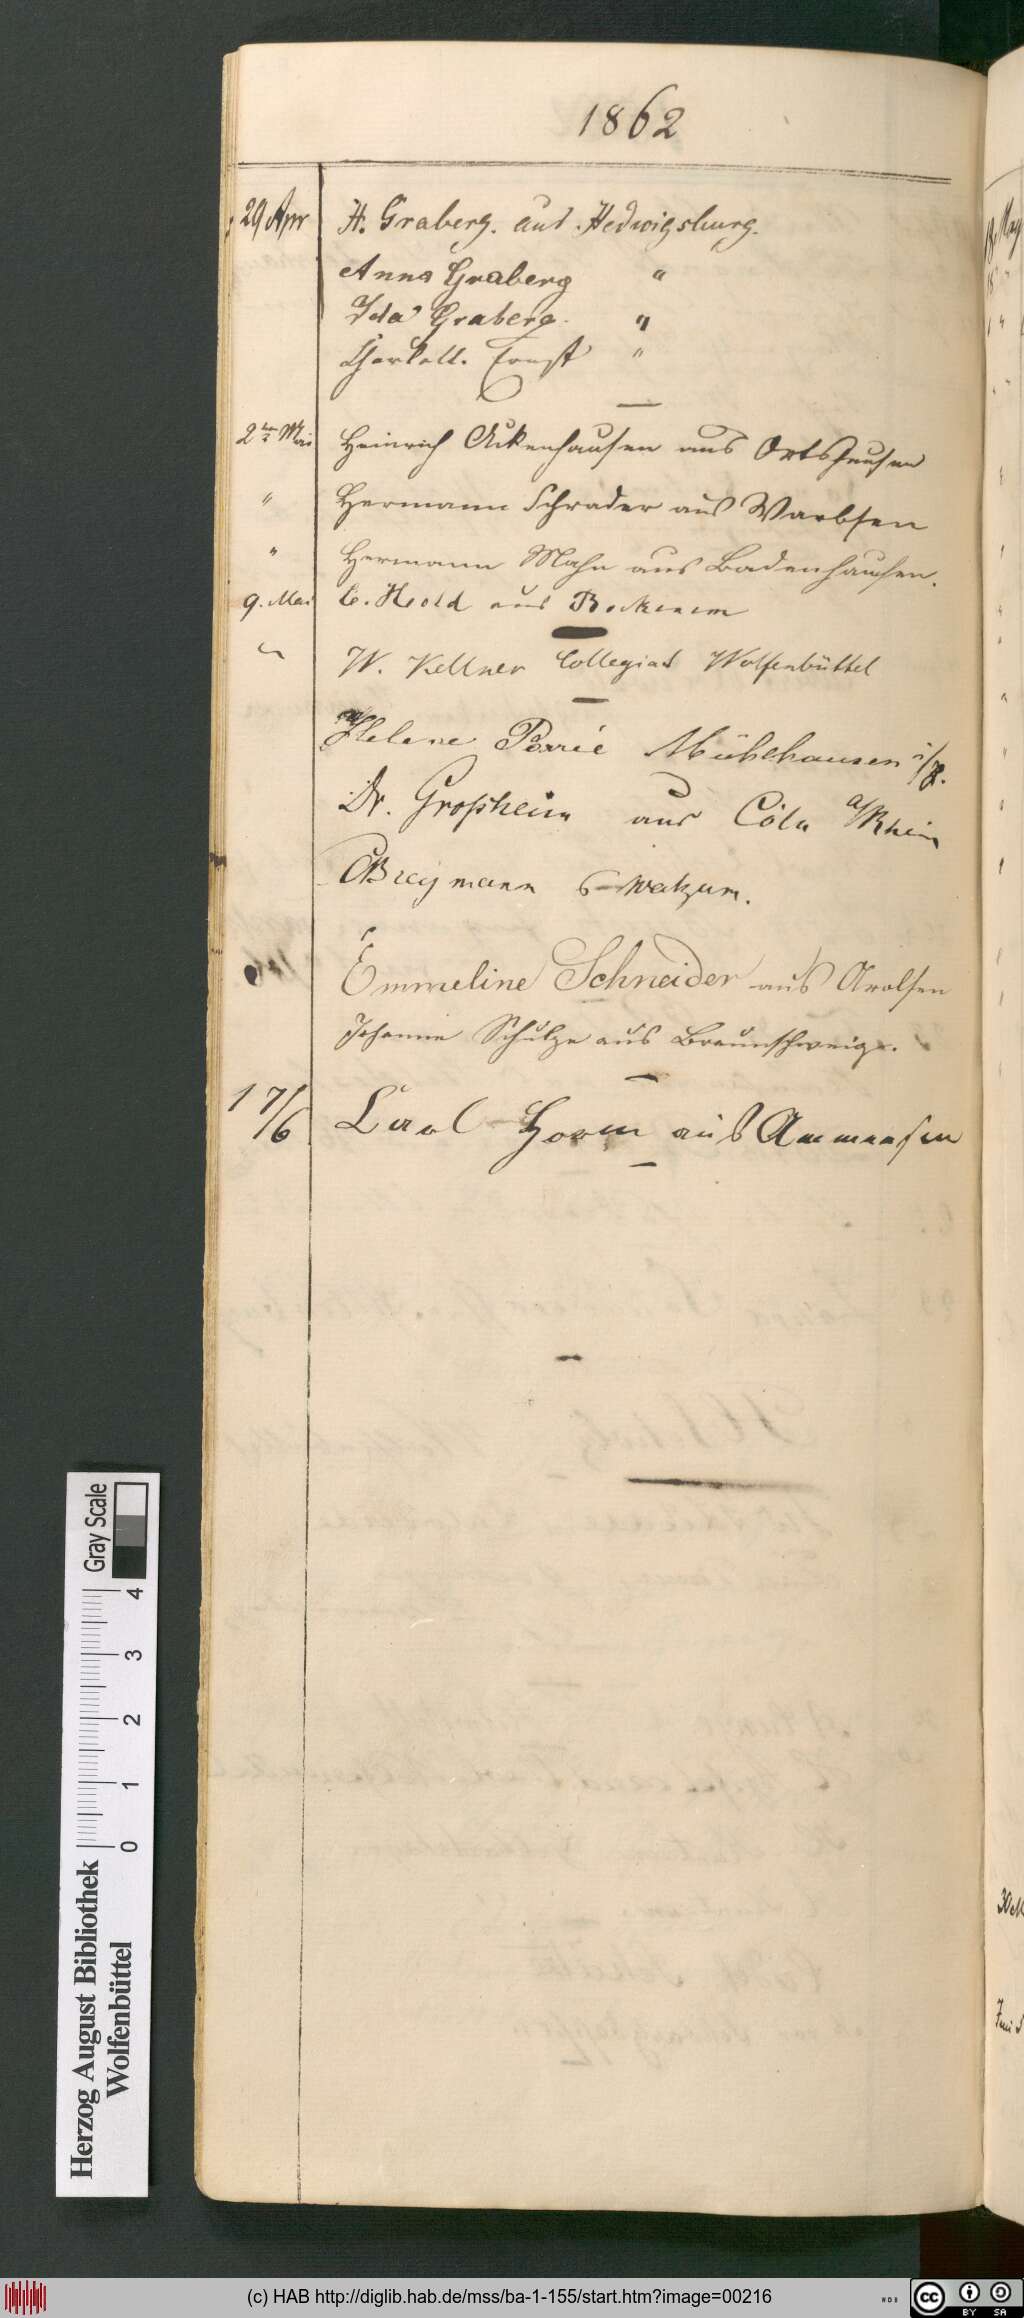 1862
29 Apr H. Graberg. aus Hedwigsburg.
Anna Graberg "
Ida Graberg. "
Ernst "
2 Mai Heinrich Ackenhausen aus Ortshausen
" Hermann Schrader aus Warbsen
" Hermann Mahn aus Badenhausen.
9. Mai C. Hold aus Bockenem
" W. Kellner Collegiat Wolfenbüttel
Helene Perrie Mühlhausen
Dr. Großheim aus Cöln a/Rhein
Breymann Watzum.
Emmeline Schneider aus Arolsen
Johanne Schulze aus Braunschweig.
17/6 Carl Horn aus Ammensen
30
Juni
Gray Scale
0 1 2 3 4
Herzog August Bibliothek
Wolfenbüttel
(c) HAB http://diglib.hab.de/mss/ba-1-155/start.htm?image=00216
cc BY SA